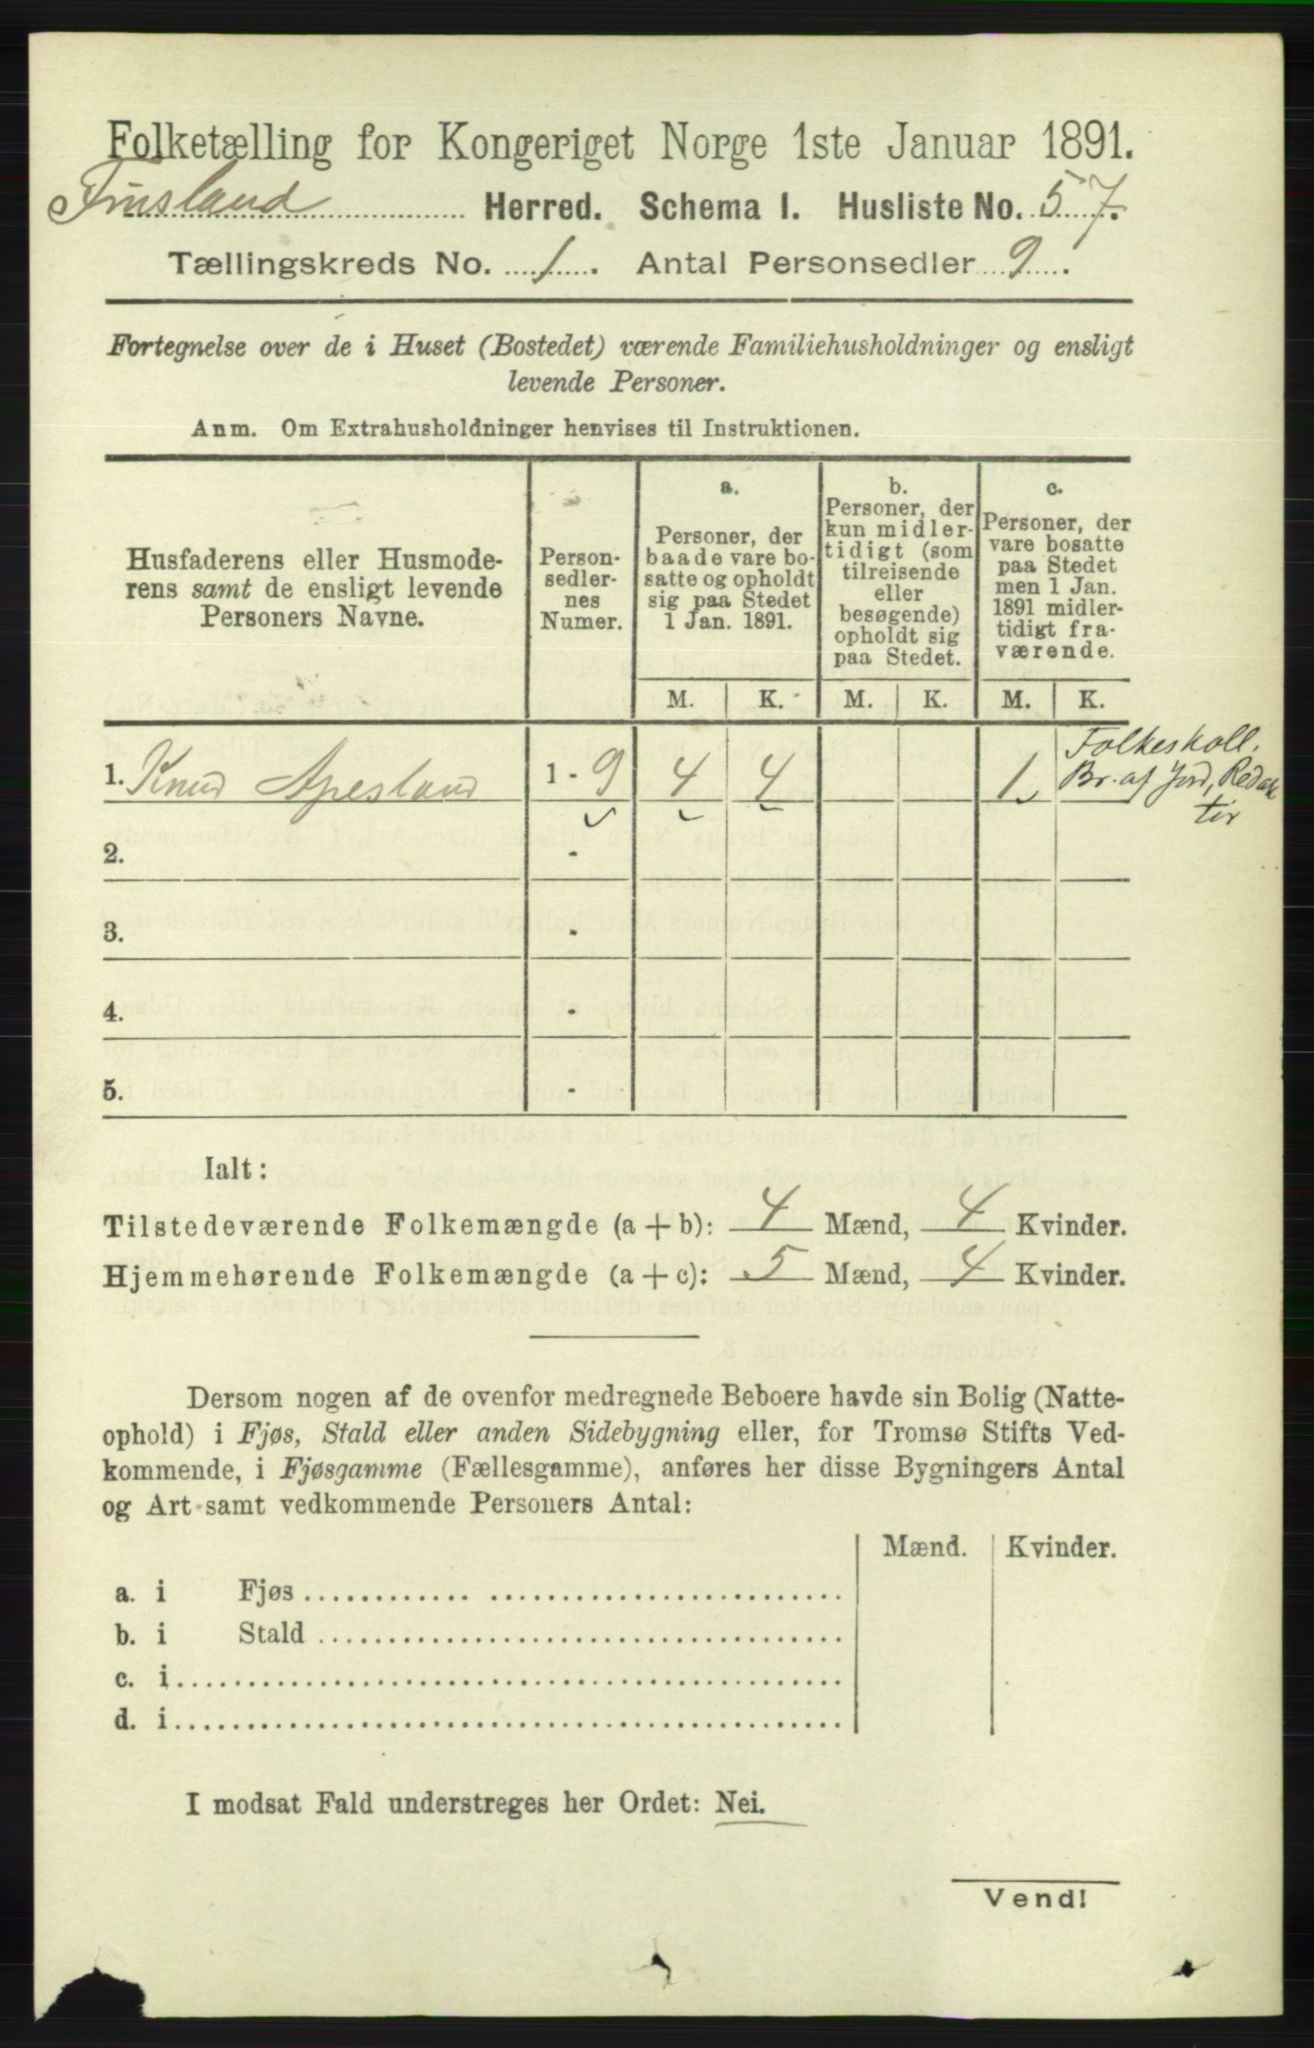 Folketælling for Kongeriget Norge 1ste Januar 1891.
Finsland Herred. Schema I. Husliste No. 57.
Tællingskreds No. 1. Antal Personsedler 9.
Fortegnelse over de i Huset (Bostedet) værende Familiehusholdninger og ensligt
levende Personer.
Anm. Om Extrahusholdninger henvises til Instruktionen.
Husfaderens eller Husmode-
rens samt de ensligt levende
Personers Navne.
Person-
sedler-
nes
Numer.
a.
Personer, der
baade vare bo-
satte og opholdt
sig paa Stedet
1 Jan. 1891.
b.
Personer, der
kun midler-
tidigt (som
tilreisende
eller
besøgende)
opholdt sig
paa Stedet.
c.
Personer, der
vare bosatte
paa Stedet
men 1 Jan.
1891 midler-
tidigt fra-
værende.
M. K. M. K. M. K.
1. Knud Apesland 1 - 9 4 4 1
Folkeskoll.
Br. af Jord, Redak
tör
2. -
3. -
4. -
5. -
Ialt:
Tilstedeværende Folkemængde (a + b): 4 Mænd, 4 Kvinder.
Hjemmehørende Folkemængde (a + c): 5 Mænd, 4 Kvinder.
Dersom nogen af de ovenfor medregnede Beboere havde sin Bolig (Natte-
ophold) i Fjøs, Stald eller anden Sidebygning eller, for Tromsø Stifts Ved-
kommende, i Fjøsgamme (Fællesgamme), anføres her disse Bygningers Antal
og Art samt vedkommende Personers Antal:
Mænd. Kvinder.
a. i Fjøs
b. i Stald
c. i
d. i
I modsat Fald understreges her Ordet: Nei.
Vend!